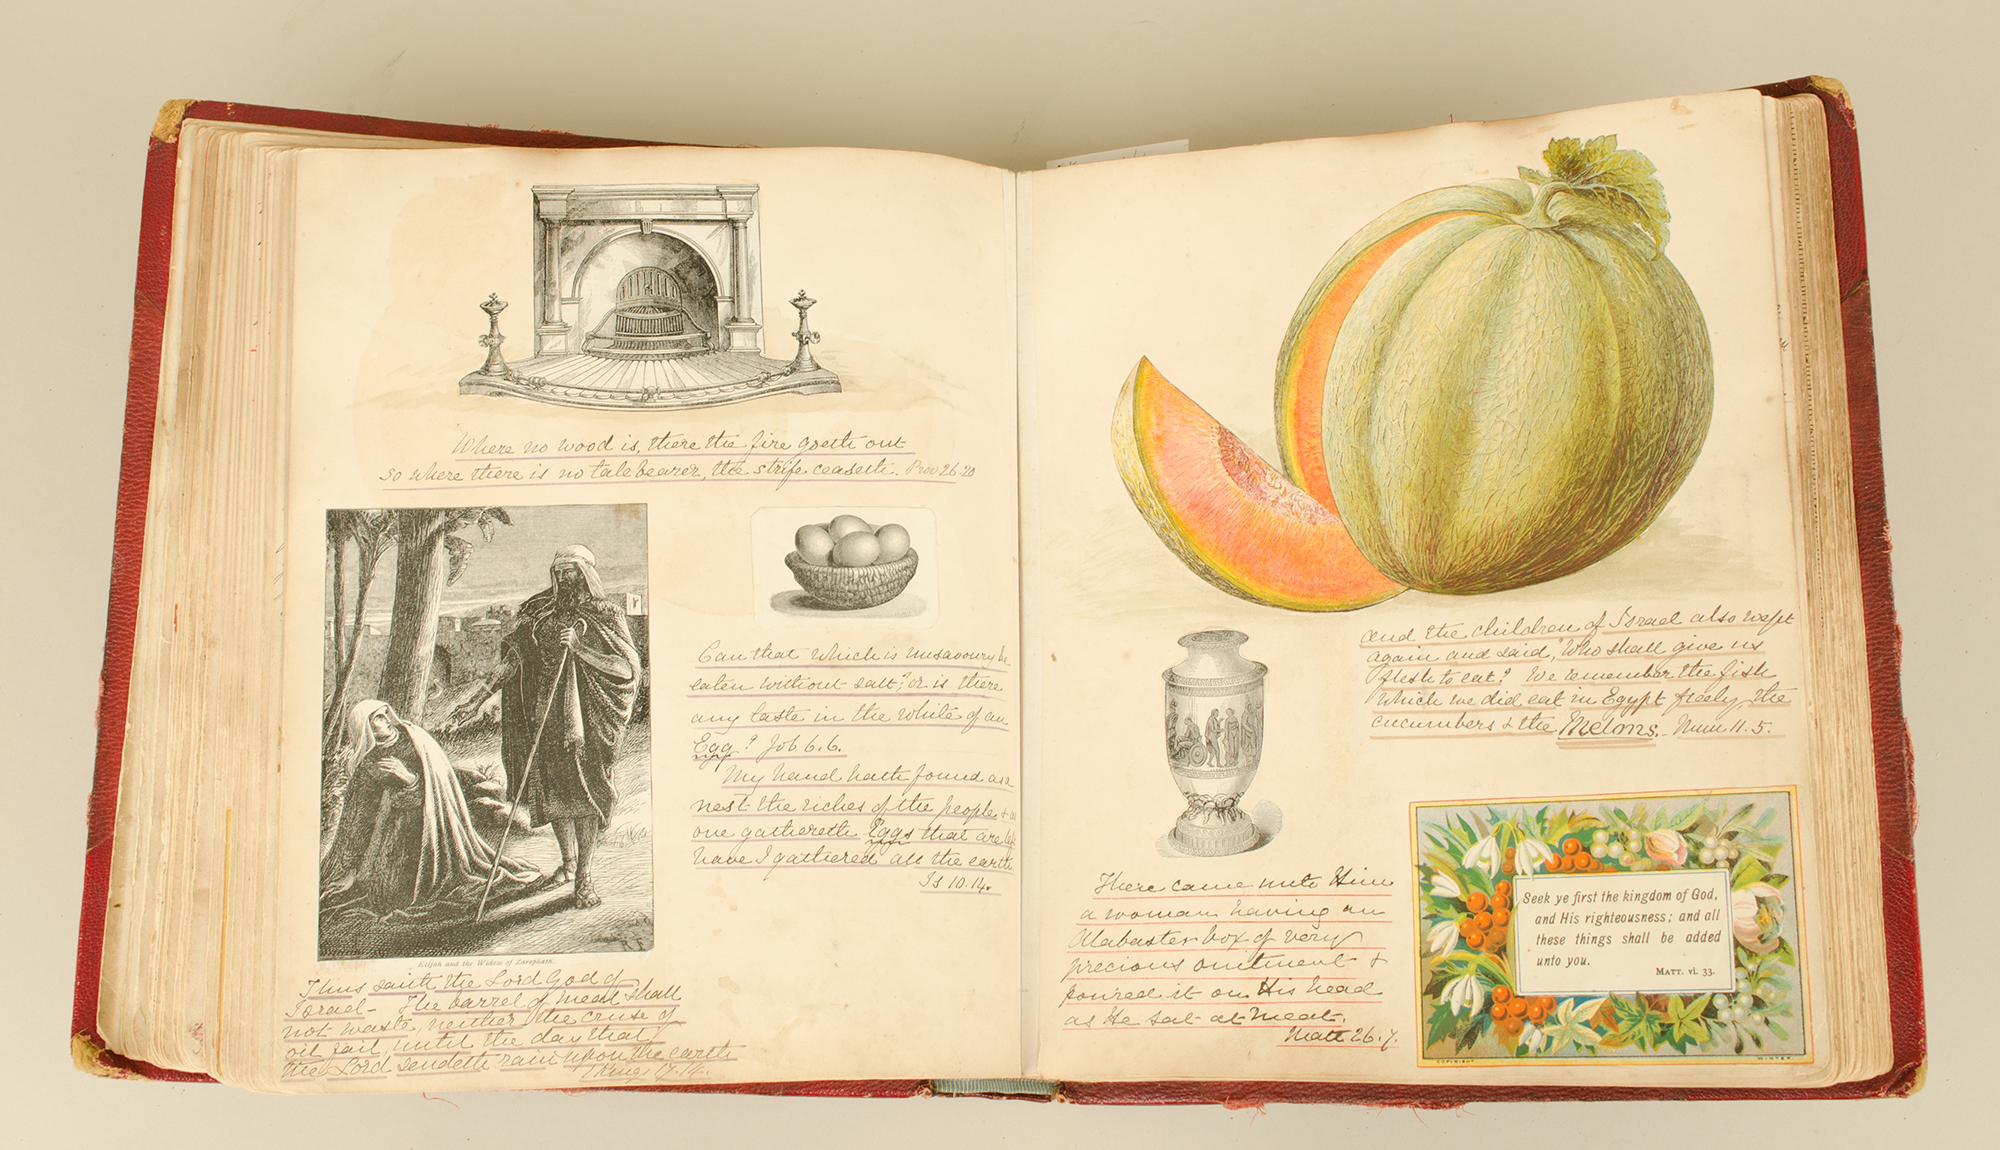 Where no wood is, there the fire goeth out
so where there is no talebearer, the strife ceaseth. Prov 26 20
Elijah and the Widow of Zarephath.
Thus saith the Lord God of
Israel - The barrel of meal shall
not waste, neither the cruse of
oil fail, until the day that
the Lord sendeth rain upon the earth
1 Kings 17.14.
Can that which is unsavoury be
eaten without salt? or is there
any taste in the white of an
Egg? Job 6.6.
My hand hath found as a
nest the riches of the people & as
one gathereth Eggs that are left
have I gathered all the earth.
Is 10.14.
and the children of Israel also wept
again and said, "Who shall give us
flesh to eat? We remember the fish
which we did eat in Egypt freely, the
cucumbers & the Melons. Num 11.5.
There came unto Him
a woman having an
Alabaster box of very
precious ointment &
poured it on His head
as He sat at meat.
Matt 26.7.
Seek ye first the kingdom of God,
and His righteousness; and all
these things shall be added
unto you.
MATT. vi. 33.
COPYRIGHT
WINTER
R E